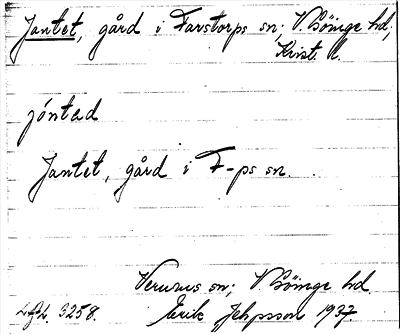 Jantet, gård i Farstorps sn; V. Göinge hd,
Krist. l.
jóntad
Jantet, gård i F-ps sn.
Verums sn; V Göinge hd.
3258. Erik Jepsson 1937.